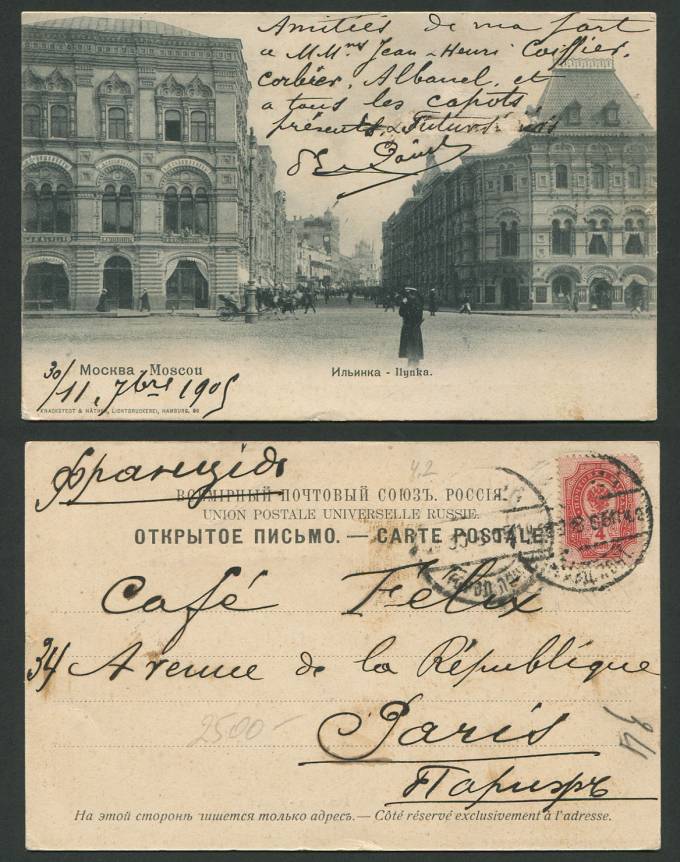 Amitiés de ma part
a M.Mrs Jean-Henri Coiffier,
Corbier, Albanel, et
a tous les capots
présents & Futurs
Москва - Moscou
Ильинка - Ilynka.
30/11, 7bre 1905
KNACKSTEDT & NÄTHER, LICHTDRUCKEREI, HAMBURG.
Францiя
4,2
ВСЕМІРНЫЙ ПОЧТОВЫЙ СОЮЗЪ. РОССІЯ.
UNION POSTALE UNIVERSELLE RUSSIE.
ОТКРЫТОЕ ПИСЬМО. — CARTE POSTALE.
Café Felix
34 Avenue de la République
2500-
Paris
34
Парижъ
На этой сторонѣ пишется только адресъ. — Côté réservé exclusivement à l'adresse.